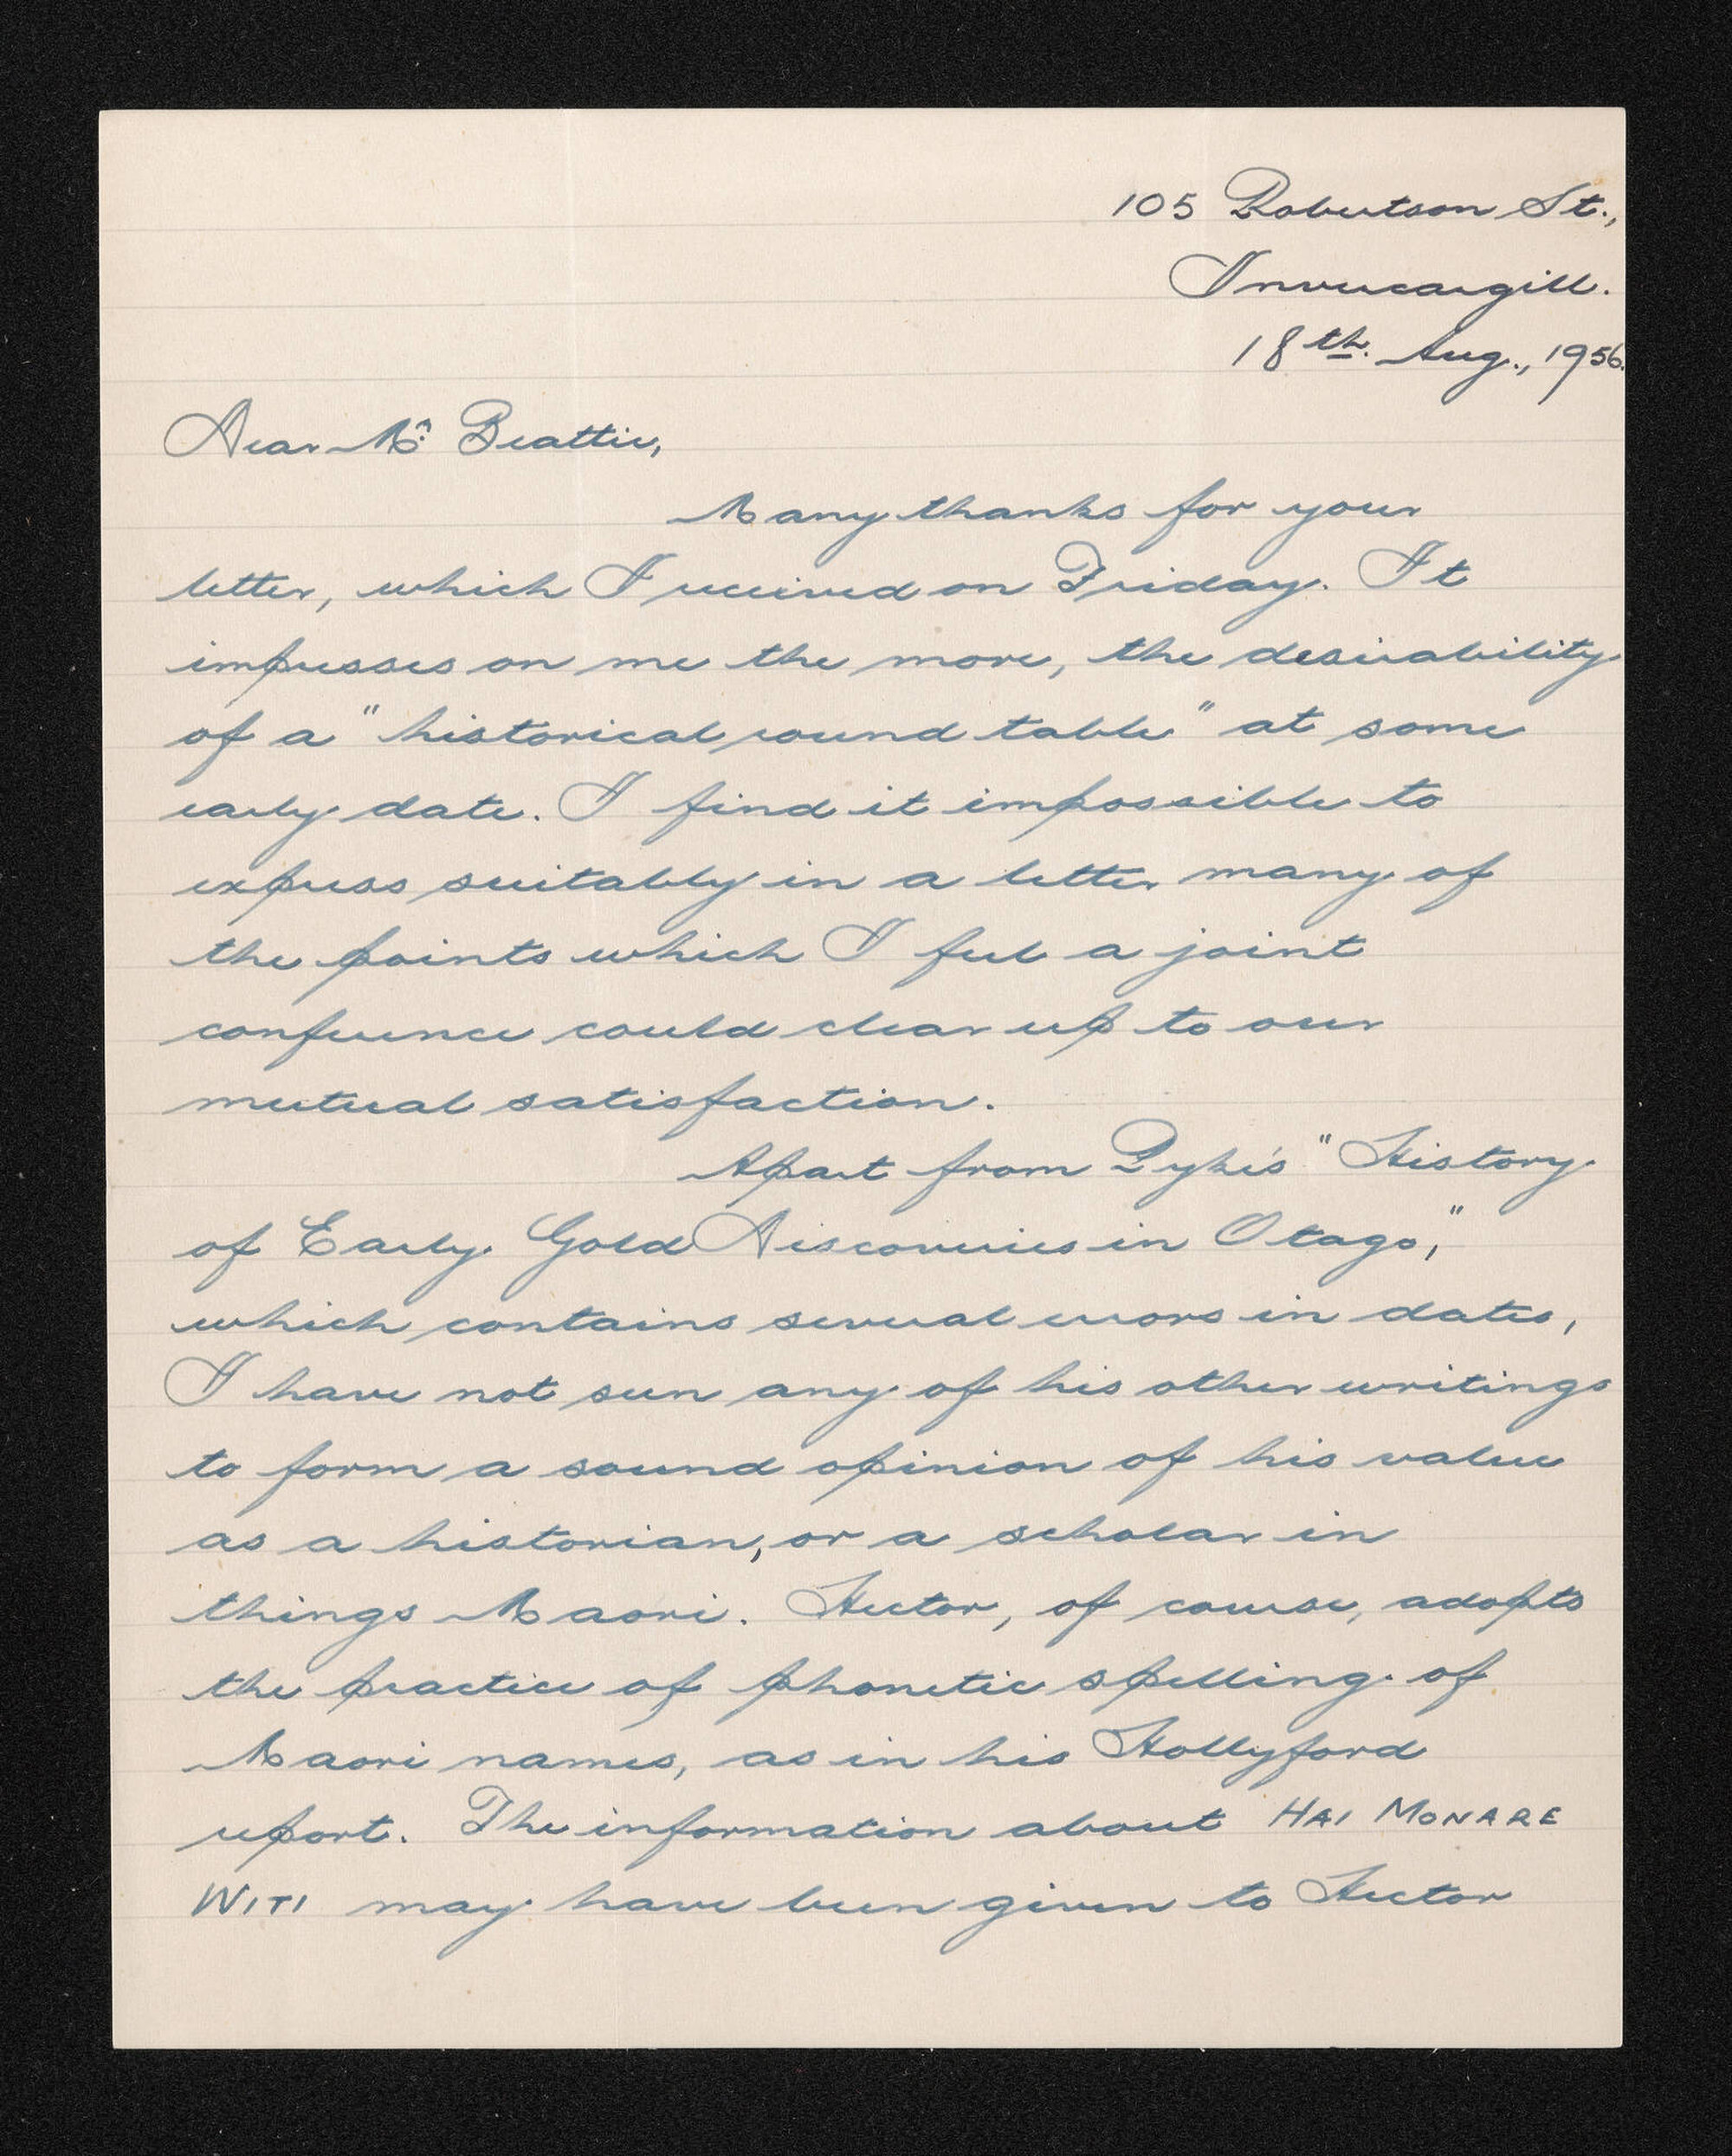 105 Robertson St.,
Invercargill.
18th. Aug., 1956.
Dear Mr. Beattie,
Many thanks for your
letter, which I received on Friday. It
impresses on me the more, the desirability
of a "historical round table" at some
early date. I find it impossible to
express suitably in a letter many of
the points which I feel a joint
conference could clear up to our
mutual satisfaction.
Apart from Pyke's "History
of Early Gold Discoveries in Otago,"
which contains several errors in dates,
I have not seen any of his other writings
to form a sound opinion of his value
as a historian, or a scholar in
things Maori. Hector, of course, adopts
the practice of phonetic spelling of
Maori names, as in his Hollyford
report. The information about HAI MONARE
WITI may have been given to Hector